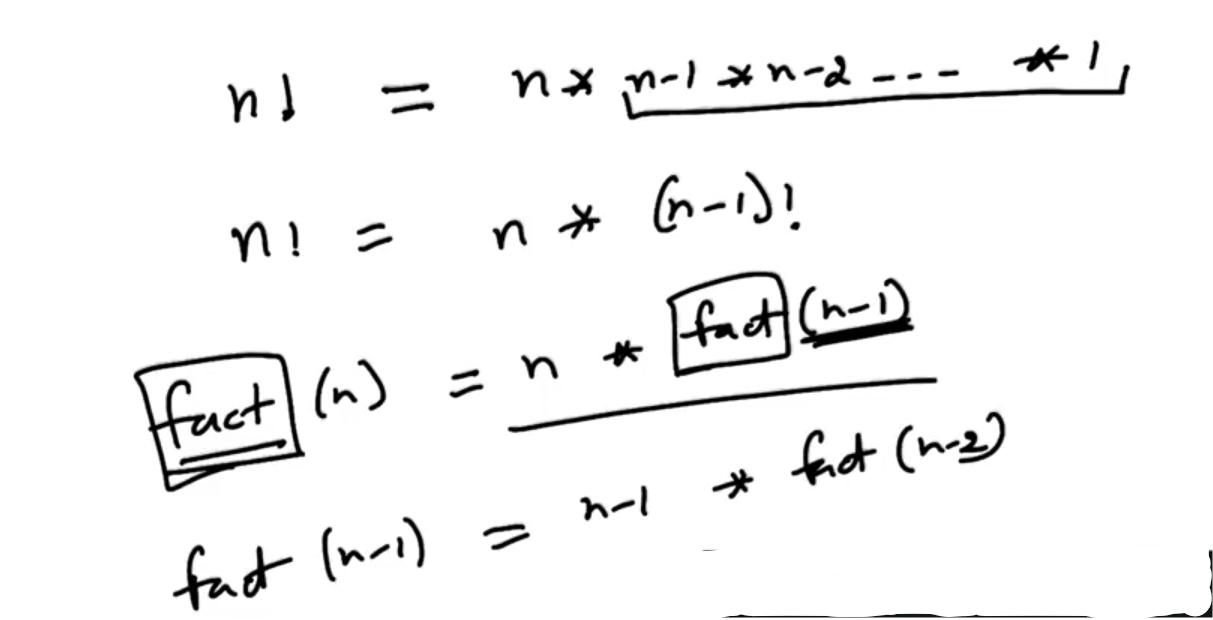 n! = n * n-1 * n-2 --- * 1
n! = n * (n-1)!
fact (n) = n * fact (n-1)
fact (n-1) = n-1 * fact (n-2)